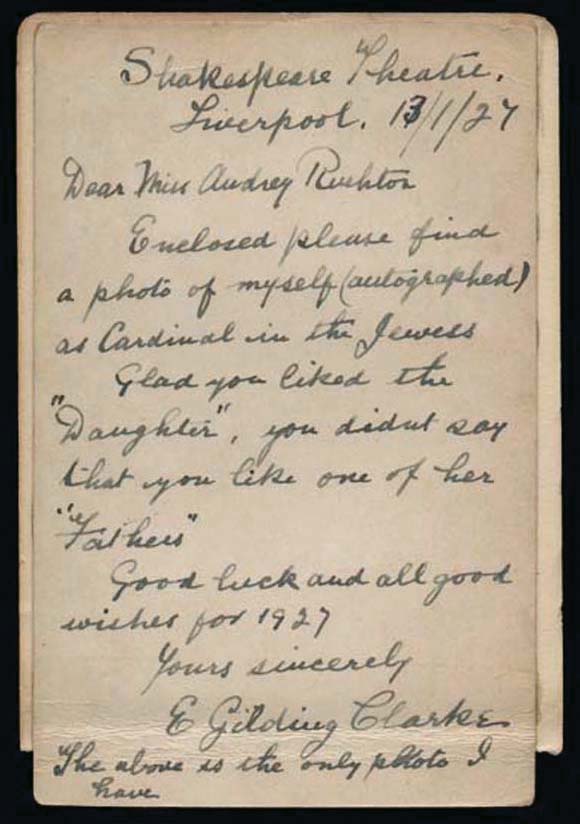 Shakespeare Theatre,
Liverpool. 13/1/27
Dear Miss Audrey Rushton
Enclosed please find
a photo of myself (autographed)
as Cardinal in the Jewess
Glad you liked the
"Daughter", you didnt say
that you like one of her
"Fathers"
Good luck and all good
wishes for 1927
Yours sincerely
E Gilding Clarke
The above is the only photo I
have